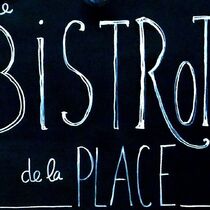 e
BiSTROT
de la PLACE